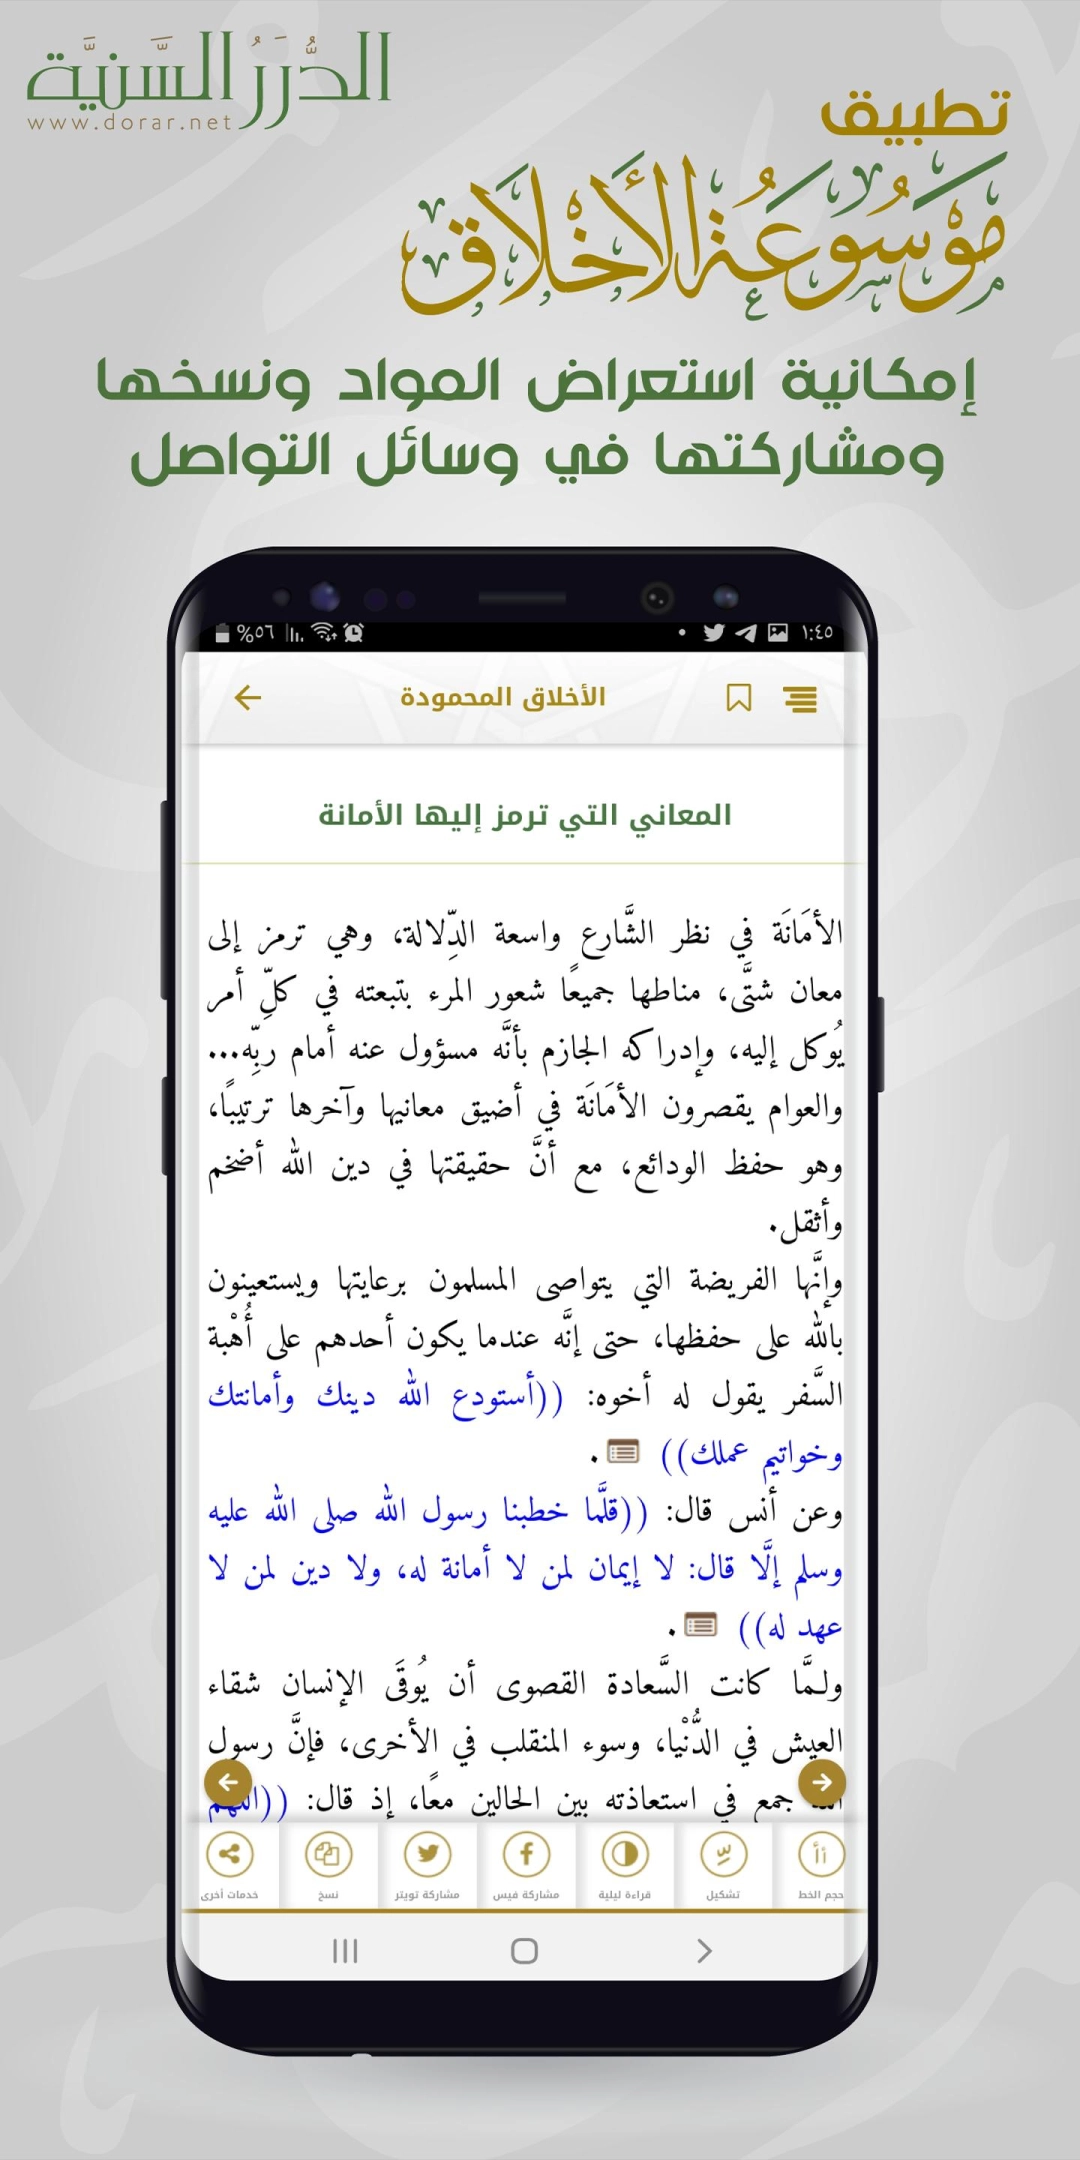 الدُّرَرُ السَّنِيَّة
www.dorar.net
تطبيق
مَوْسُوعَةُ الأَخْلَاق
إمكانية استعراض المواد ونسخها
ومشاركتها في وسائل التواصل
%٥٦
١:٤٥
الأخلاق المحمودة
المعاني التي ترمز إليها الأمانة
الأمَانَة في نظر الشَّارع واسعة الدِّلالة، وهي ترمز إلى
معان شتَّى، مناطها جميعًا شعور المرء بتبعته في كلِّ أمر
يُوكل إليه، وإدراكه الجازم بأنَّه مسؤول عنه أمام ربِّه...
والعوام يقصرون الأمَانَة في أضيق معانيها وآخرها ترتيبًا،
وهو حفظ الودائع، مع أنَّ حقيقتها في دين الله أضخم
وأثقل.
وإنَّها الفريضة التي يتواصى المسلمون برعايتها ويستعينون
بالله على حفظها، حتى إنَّه عندما يكون أحدهم على أُهْبة
السَّفر يقول له أخوه: ((أستودع الله دينك وأمانتك
وخواتيم عملك)) .
وعن أنس قال: ((قلَّما خطبنا رسول الله صلى الله عليه
وسلم إلَّا قال: لا إيمان لمن لا أمانة له، ولا دين لمن لا
عهد له)) .
ولـمَّا كانت السَّعادة القصوى أن يُوقَى الإنسان شقاء
العيش في الدُّنْيا، وسوء المنقلب في الأخرى، فإنَّ رسول
الله جمع في استعاذته بين الحالين معًا، إذ قال: ((اللهم
حجم الخط
تشكيل
قراءة ليلية
مشاركة فيس
مشاركة تويتر
نسخ
خدمات أخرى